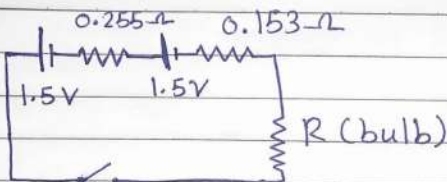 0.255Ω 0.153Ω
1.5V 1.5V
R (bulb)